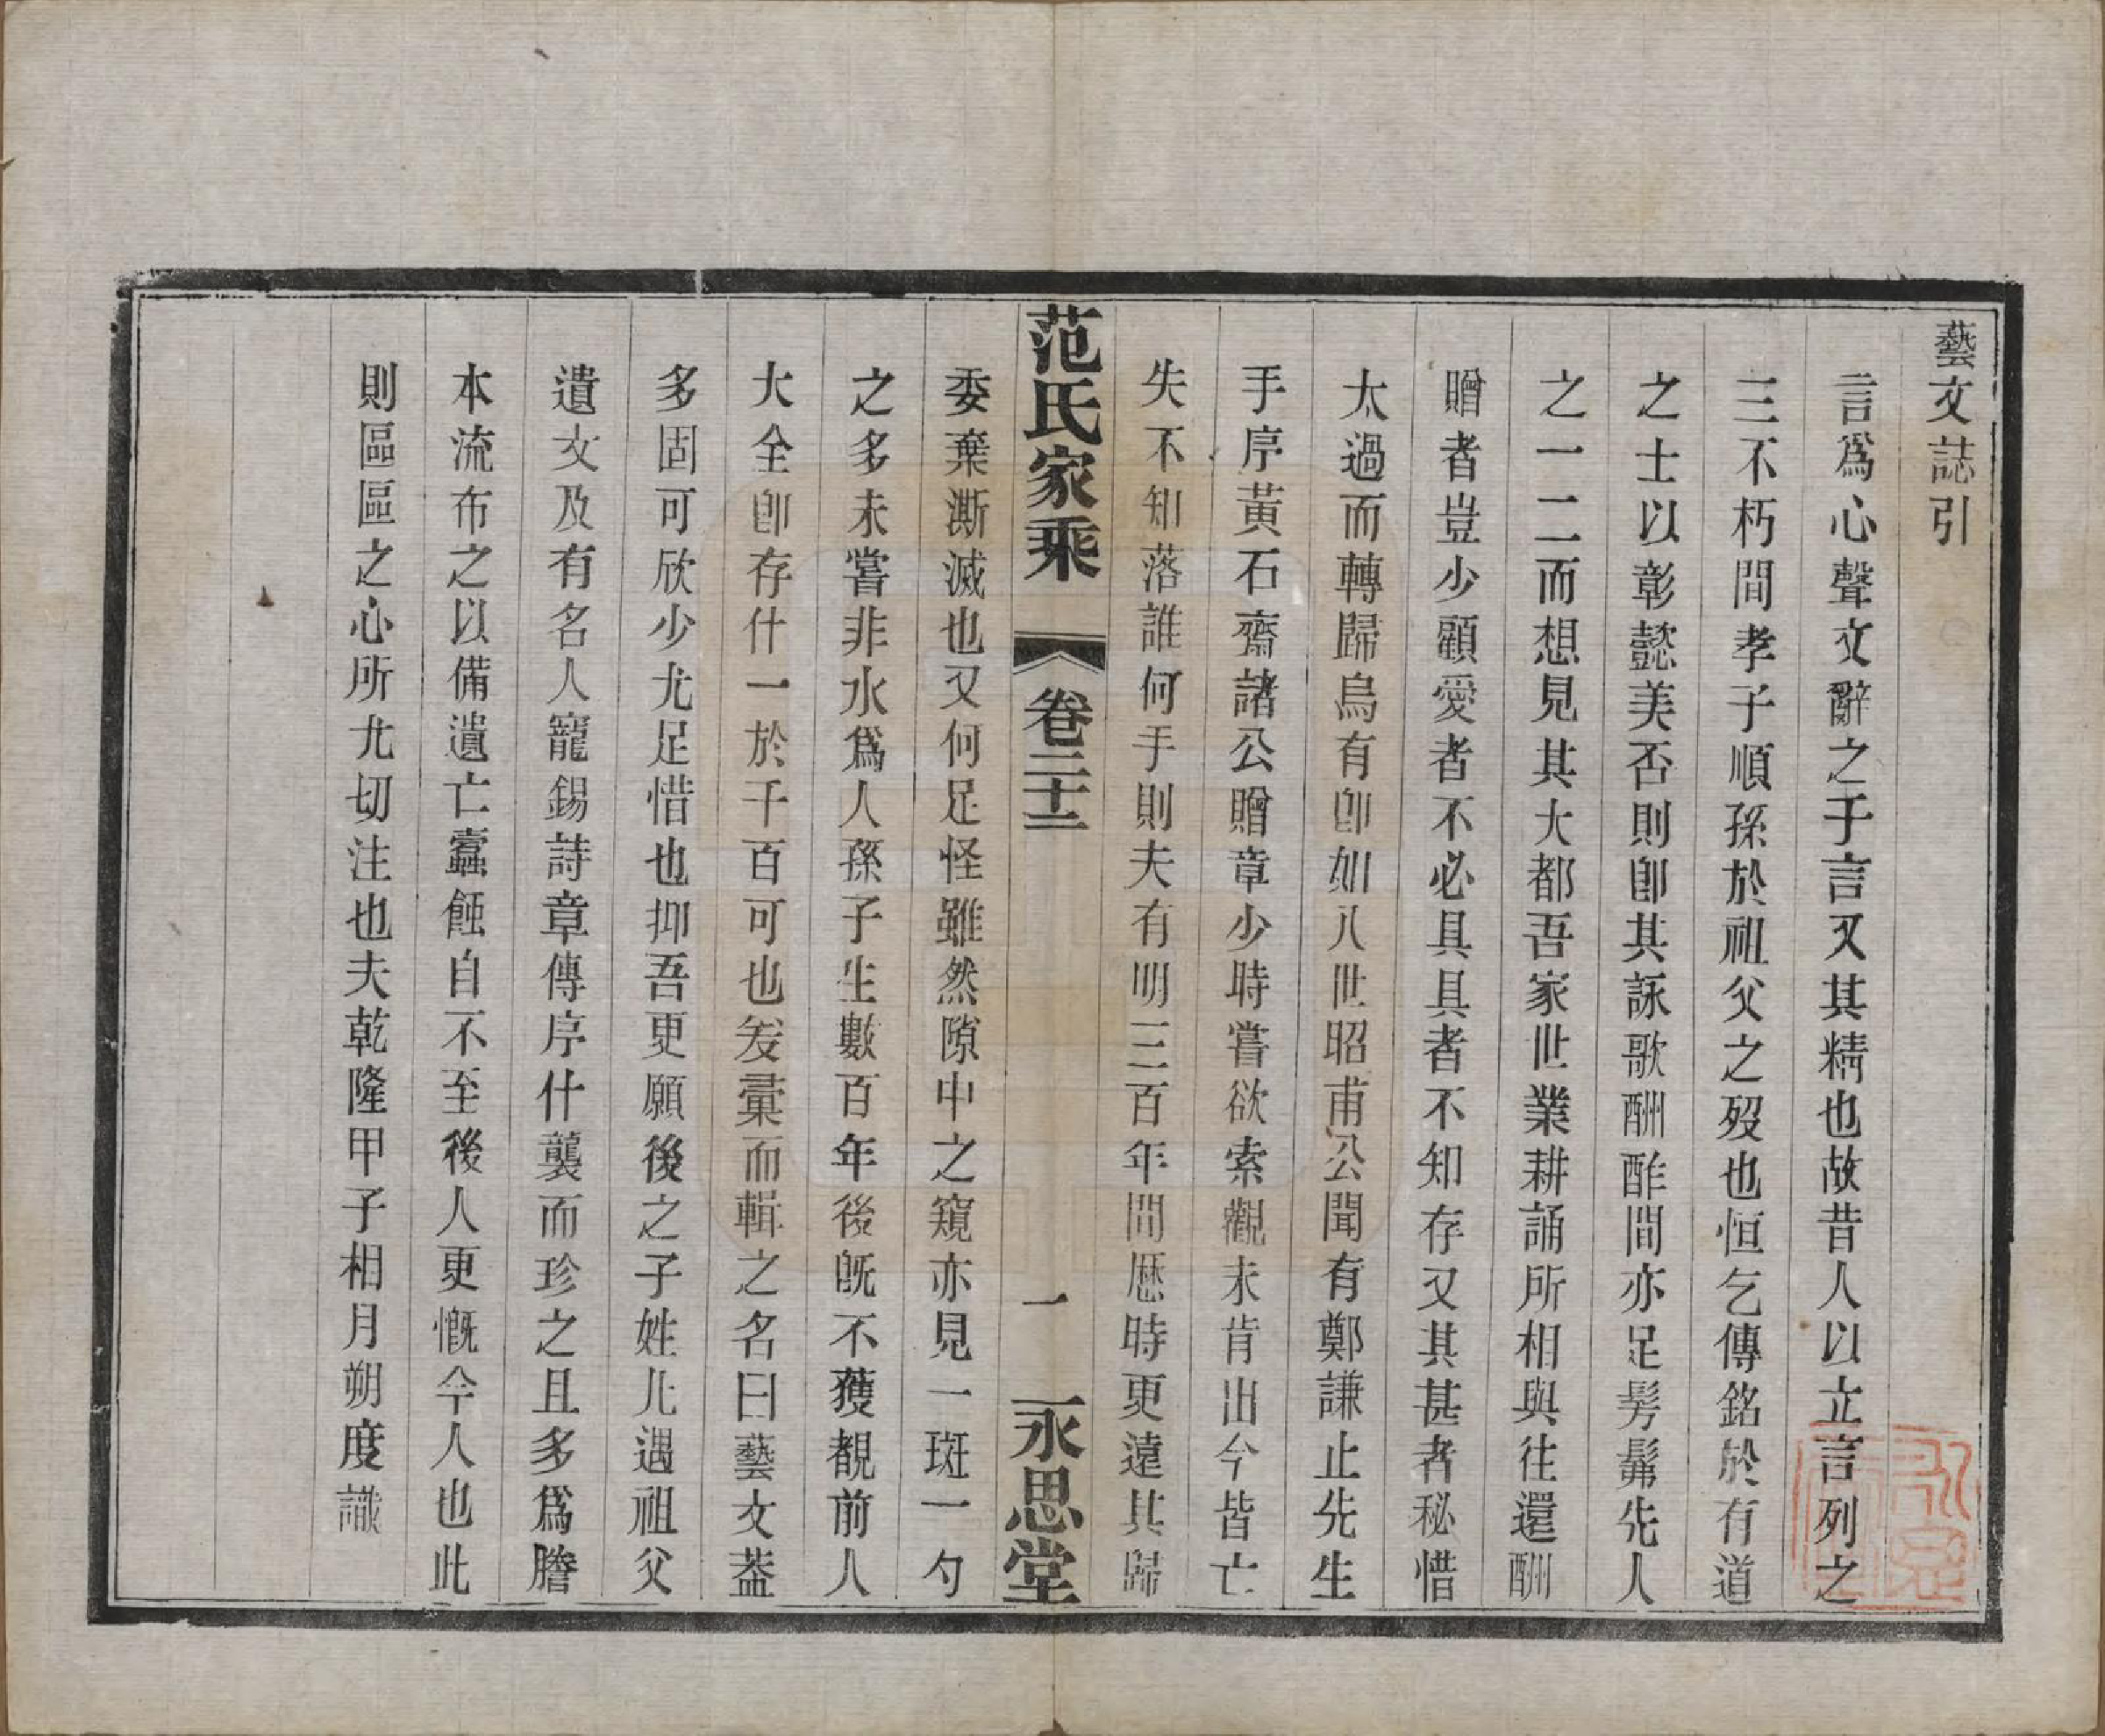 藝文誌引
言爲心聲文辭之于言又其精也故昔人以立言列之
三不朽間孝子順孫於祖父之歿也恒乞傳銘於有道
之士以彰懿美否則卽其詠歌酬酢間亦足髣髴先人
之一二而想見其大都吾家世業耕誦所相與往還酬
贈者豈少顧愛者不必具具者不知存又其甚者秘惜
太過而轉歸烏有卽如八世昭甫公聞有鄭謙止先生
手序黃石齋諸公贈章少時嘗欲索觀未肯出今皆亡
失不知落誰何手則夫有明三百年間歷時更遠其歸
范氏家乘
卷二十二
一
永思堂
委棄澌滅也又何足怪雖然隙中之窺亦見一斑一勺
之多未嘗非水爲人孫子生數百年後旣不獲覩前人
大全卽存什一於千百可也爰彙而輯之名曰藝文葢
多固可欣少尤足惜也抑吾更願後之子姓凡遇祖父
遺文及有名人寵錫詩章傳序什襲而珍之且多爲謄
本流布之以備遺亡蠹蝕自不至後人更慨今人也此
則區區之心所尤切注也夫乾隆甲子相月朔度識